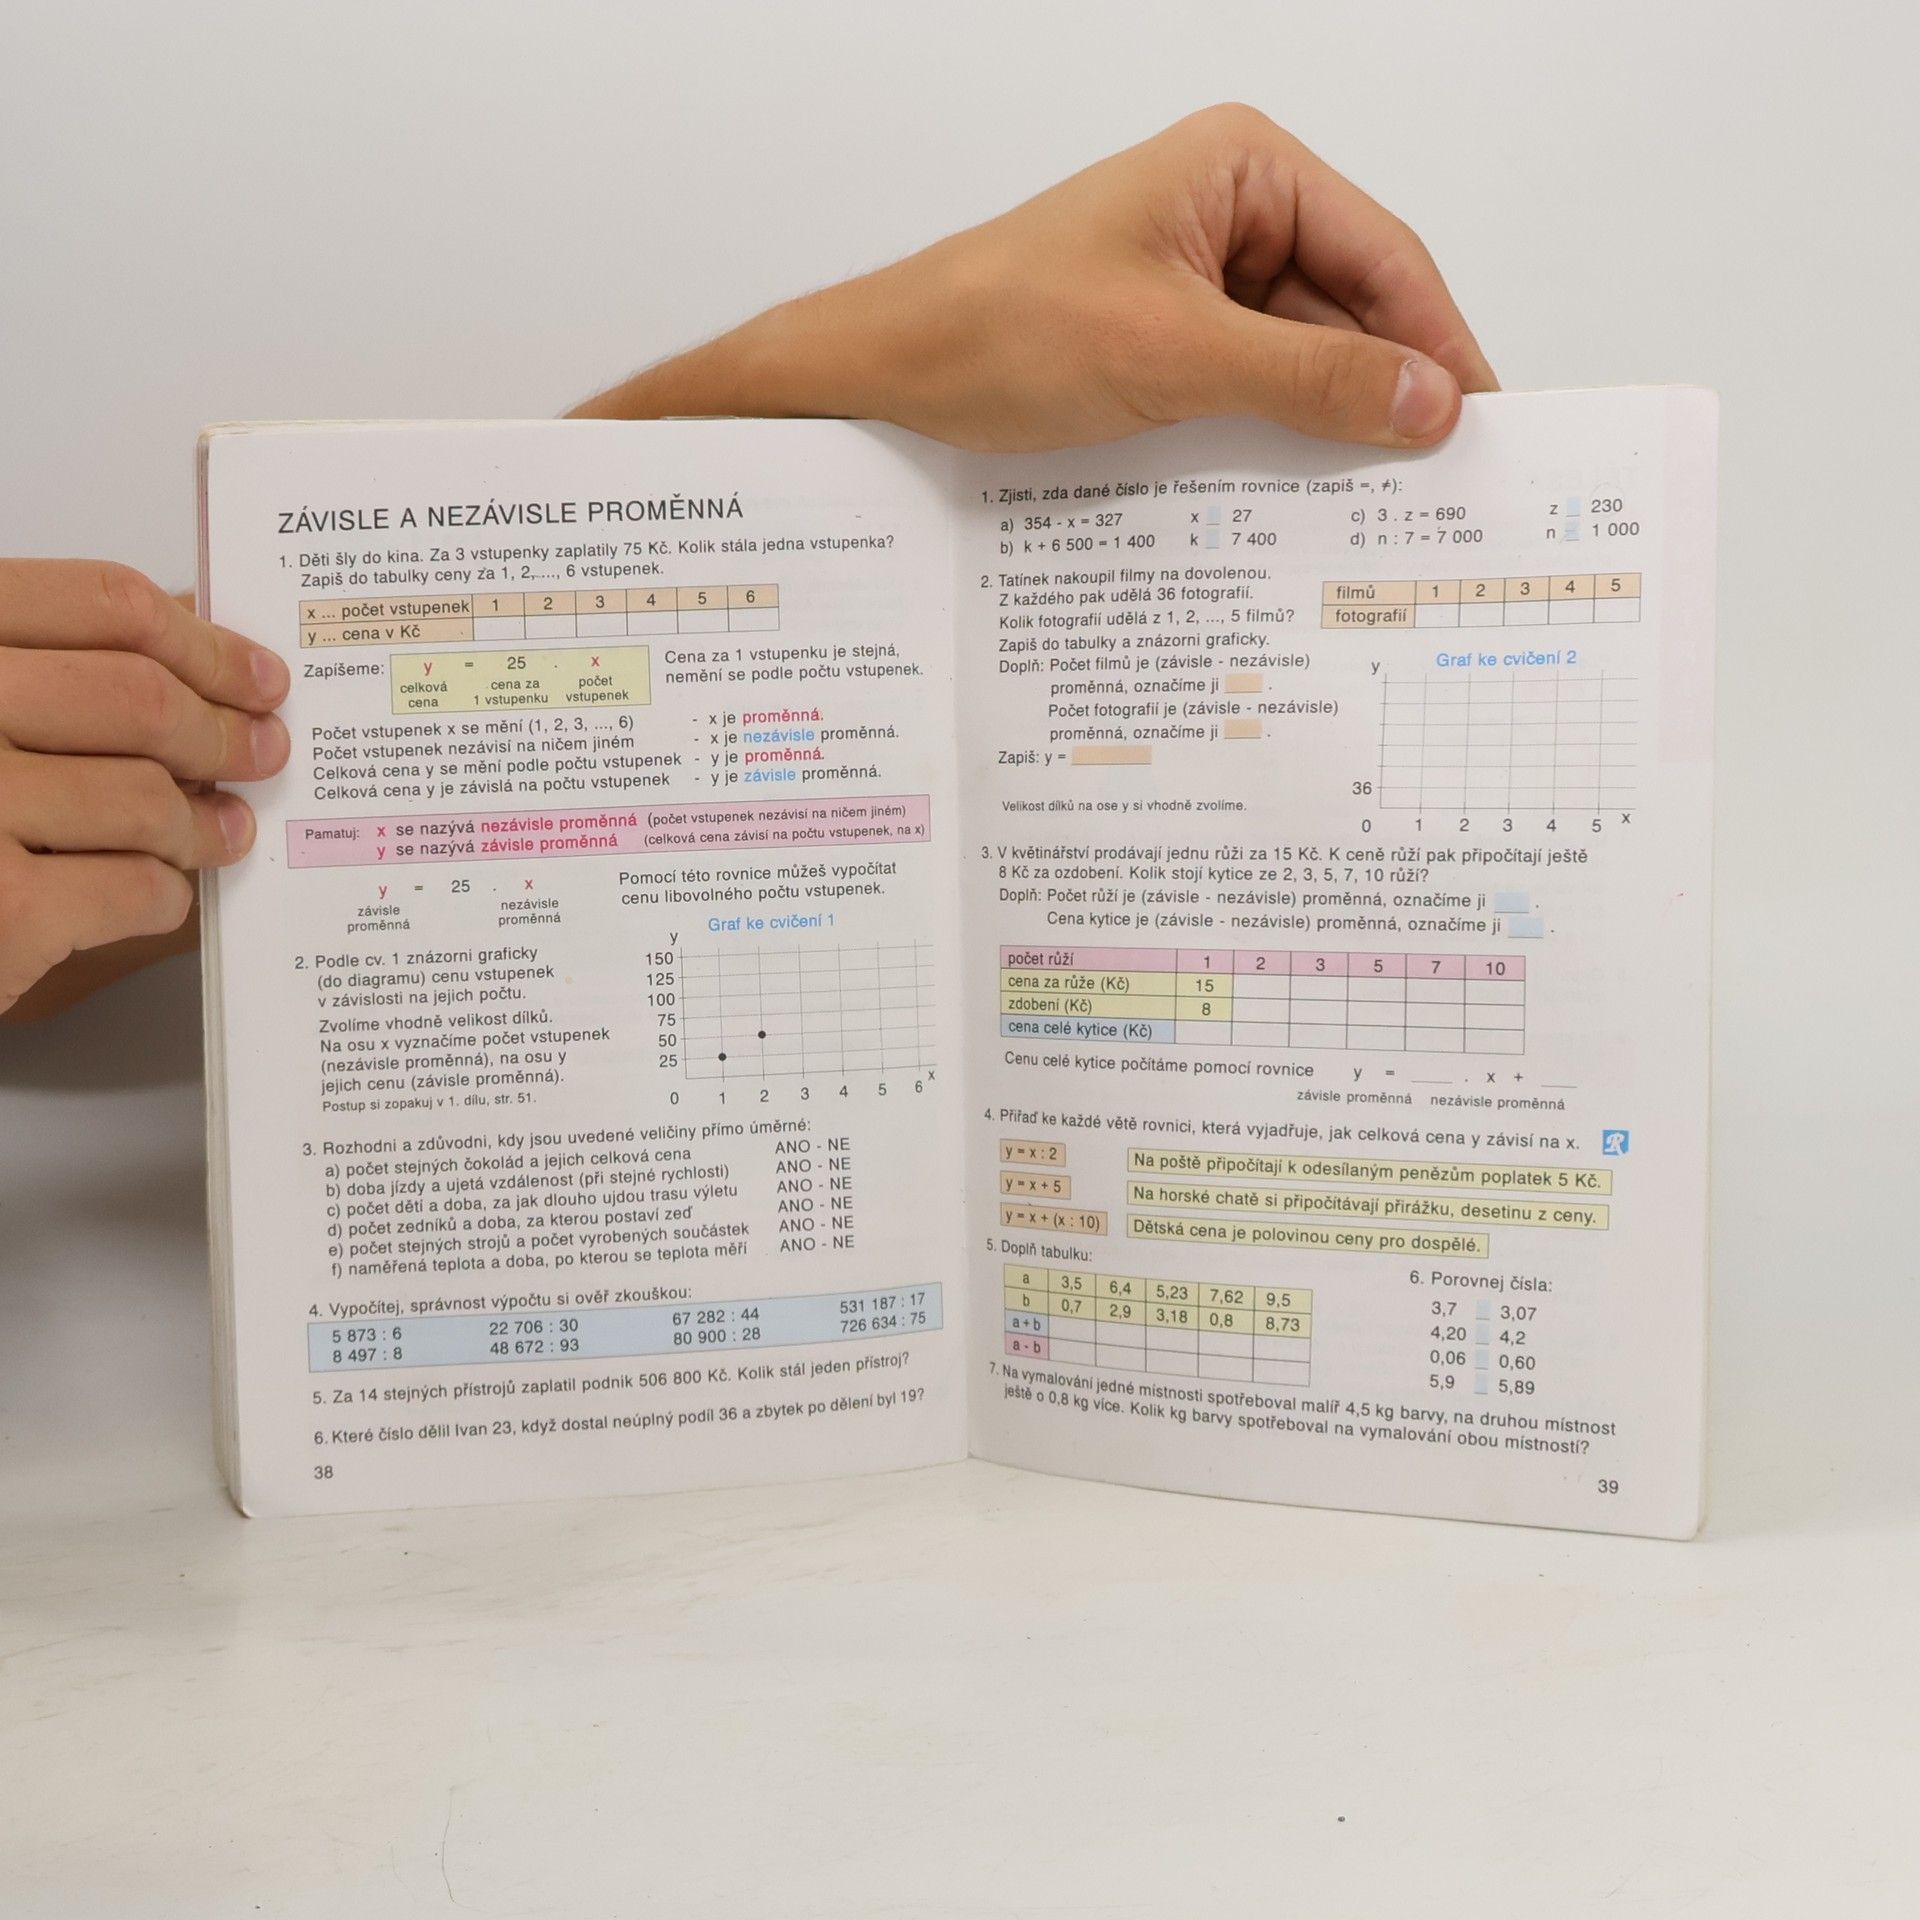 ZÁVISLE A NEZÁVISLE PROMĚNNÁ
1. Děti šly do kina. Za 3 vstupenky zaplatily 75 Kč. Kolik stála jedna vstupenka?
Zapiš do tabulky ceny za 1, 2, ..., 6 vstupenek.
x ... počet vstupenek 1 2 3 4 5 6
y ... cena v Kč
Zapíšeme: y = 25 . x
celková cena za počet
cena 1 vstupenku vstupenek
Cena za 1 vstupenku je stejná,
nemění se podle počtu vstupenek.
Počet vstupenek x se mění (1, 2, 3, ..., 6) - x je proměnná.
Počet vstupenek nezávisí na ničem jiném - x je nezávisle proměnná.
Celková cena y se mění podle počtu vstupenek - y je proměnná.
Celková cena y je závislá na počtu vstupenek - y je závisle proměnná.
Pamatuj: x se nazývá nezávisle proměnná (počet vstupenek nezávisí na ničem jiném)
y se nazývá závisle proměnná (celková cena závisí na počtu vstupenek, na x)
y = 25 . x
závisle nezávisle
proměnná proměnná
Pomocí této rovnice můžeš vypočítat
cenu libovolného počtu vstupenek.
2. Podle cv. 1 znázorni graficky
(do diagramu) cenu vstupenek
v závislosti na jejich počtu.
Zvolíme vhodně velikost dílků.
Na osu x vyznačíme počet vstupenek
(nezávisle proměnná), na osu y
jejich cenu (závisle proměnná).
Postup si zopakuj v 1. dílu, str. 51.
Graf ke cvičení 1
y
150
125
100
75
50
25
0 1 2 3 4 5 6 x
3. Rozhodni a zdůvodni, kdy jsou uvedené veličiny přímo úměrné:
a) počet stejných čokolád a jejich celková cena ANO - NE
b) doba jízdy a ujetá vzdálenost (při stejné rychlosti) ANO - NE
c) počet dětí a doba, za jak dlouho ujdou trasu výletu ANO - NE
d) počet zedníků a doba, za kterou postaví zeď ANO - NE
e) počet stejných strojů a počet vyrobených součástek ANO - NE
f) naměřená teplota a doba, po kterou se teplota měří ANO - NE
4. Vypočítej, správnost výpočtu si ověř zkouškou:
5 873 : 6 22 706 : 30 67 282 : 44 531 187 : 17
8 497 : 8 48 672 : 93 80 900 : 28 726 634 : 75
5. Za 14 stejných přístrojů zaplatil podnik 506 800 Kč. Kolik stál jeden přístroj?
6. Které číslo dělil Ivan 23, když dostal neúplný podíl 36 a zbytek po dělení byl 19?
38
1. Zjisti, zda dané číslo je řešením rovnice (zapiš =, ≠):
a) 354 - x = 327 x _ 27 c) 3 . z = 690 z _ 230
b) k + 6 500 = 1 400 k _ 7 400 d) n : 7 = 7 000 n _ 1 000
2. Tatínek nakoupil filmy na dovolenou.
Z každého pak udělá 36 fotografií.
Kolik fotografií udělá z 1, 2, ..., 5 filmů?
Zapiš do tabulky a znázorni graficky.
Doplň: Počet filmů je (závisle - nezávisle)
proměnná, označíme ji .
Počet fotografií je (závisle - nezávisle)
proměnná, označíme ji .
Zapiš: y =
Velikost dílků na ose y si vhodně zvolíme.
filmů 1 2 3 4 5
fotografií
Graf ke cvičení 2
y
36
0 1 2 3 4 5 x
3. V květinářství prodávají jednu růži za 15 Kč. K ceně růží pak připočítají ještě
8 Kč za ozdobení. Kolik stojí kytice ze 2, 3, 5, 7, 10 růží?
Doplň: Počet růží je (závisle - nezávisle) proměnná, označíme ji .
Cena kytice je (závisle - nezávisle) proměnná, označíme ji .
počet růží 1 2 3 5 7 10
cena za růže (Kč) 15
zdobení (Kč) 8
cena celé kytice (Kč)
Cenu celé kytice počítáme pomocí rovnice y = ___ . x + ___
závisle proměnná nezávisle proměnná
4. Přiřaď ke každé větě rovnici, která vyjadřuje, jak celková cena y závisí na x. R
y = x : 2 Na poště připočítají k odesílaným penězům poplatek 5 Kč.
y = x + 5 Na horské chatě si připočítávají přirážku, desetinu z ceny.
y = x + (x : 10) Dětská cena je polovinou ceny pro dospělé.
5. Doplň tabulku:
a 3,5 6,4 5,23 7,62 9,5
b 0,7 2,9 3,18 0,8 8,73
a + b
a - b
6. Porovnej čísla:
3,7 _ 3,07
4,20 _ 4,2
0,06 _ 0,60
5,9 _ 5,89
7. Na vymalování jedné místnosti spotřeboval malíř 4,5 kg barvy, na druhou místnost
ještě o 0,8 kg více. Kolik kg barvy spotřeboval na vymalování obou místností?
39